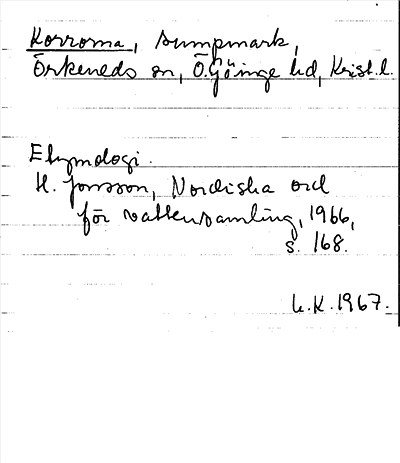 Korroma, sumpmark,
Örkeneds sn, Ö. Göinge hd, Krist. l.
Etymologi.
H. Jonsson, Nordiska ord
för vattensamling, 1966,
s. 168.
L.K. 1967.